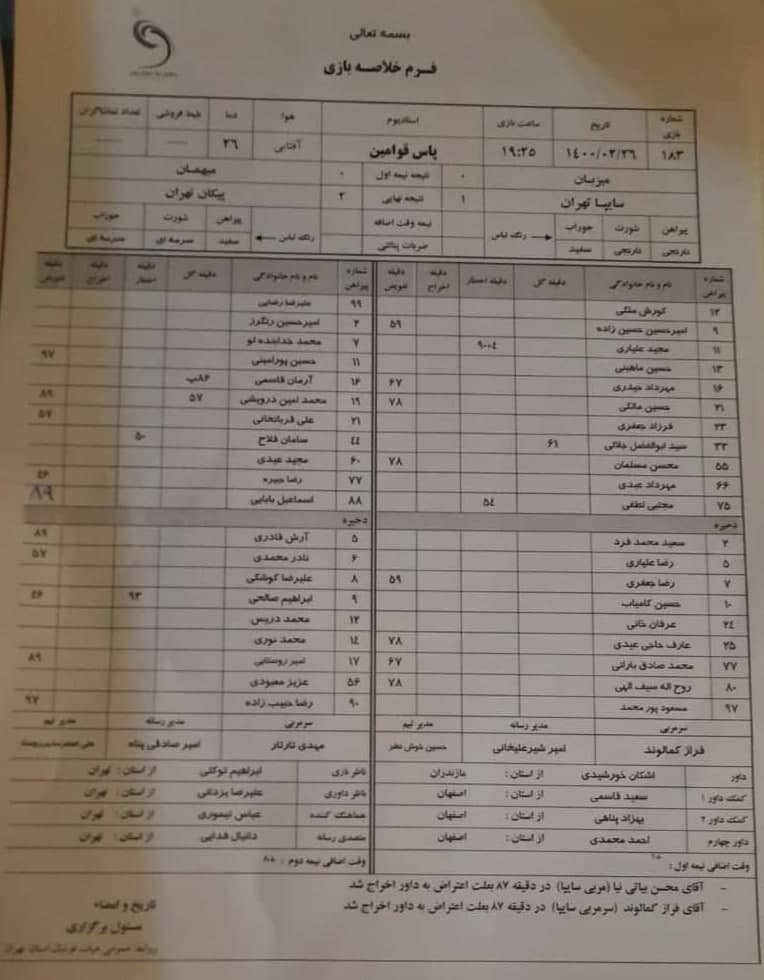 بسمه تعالی
فرم خلاصه بازی
شماره بازی تاریخ ساعت بازی استادیوم هوا دما بلیط فروشی تعداد تماشاگران
۱۸۳ ۱۴۰۰/۰۲/۲۶ ۱۹:۲۵ پاس قوامین آفتابی ۲۶ ---- ----
میزبان ۰ نتیجه نیمه اول ۰ میهمان
سایپا تهران ۱ نتیجه نهایی ۲ پیکان تهران
پیراهن شورت جوراب رنگ لباس نیمه وقت اضافه رنگ لباس پیراهن شورت جوراب
نارنجی نارنجی سفید ضربات پنالتی سفید سرمه ای سرمه ای
شماره پیراهن نام و نام خانوادگی دقیقه گل دقیقه اخطار دقیقه اخراج دقیقه تعویض شماره پیراهن نام و نام خانوادگی دقیقه گل دقیقه اخطار دقیقه اخراج دقیقه تعویض
۱۲ کورش ملکی ۹۹ علیرضا رضایی
۹ امیرحسین حسین زاده ۵۹ ۲ امیرحسین رنگرز
۱۱ مجید علیاری ۹۰+۴ ۷ محمد خدابنده لو
۱۳ حسین ماهینی ۱۱ حسین پورامینی ۹۷
۱۶ مهرداد حیدری ۶۷ ۱۶ آرمان قاسمی ۸۶پ
۲۱ حسین مالکی ۷۸ ۱۹ محمد امین درویشی ۵۷ ۸۹
۲۳ فرزاد جعفری ۲۱ علی قربانخانی ۵۷
۳۳ سید ابوالفضل جلالی ۶۱ ۴۴ سامان فلاح ۵۰
۵۵ محسن مسلمان ۷۸ ۶۰ مجید عیدی
۶۶ مهرداد عبدی ۷۷ رضا جبیره ۴۶
۷۵ مجتبی لطفی ۵۴ ۸۸ اسماعیل بابایی ۸۹
ذخیره ذخیره
۲ سعید محمد فرد ۵ آرش قادری ۸۹
۵ رضا علیاری ۶ نادر محمدی ۵۷
۷ رضا جعفری ۵۹ ۸ علیرضا کوشکی
۱۰ حسین کامیاب ۹ ابراهیم صالحی ۹۳ ۴۶
۲۴ عرفان خانی ۱۲ محمد دریس
۲۵ عارف حاجی عیدی ۷۸ ۱۴ محمد نوری
۷۷ محمد صادق بارانی ۶۷ ۱۷ امیر روستایی ۸۹
۸۰ روح اله سیف الهی ۷۸ ۵۶ عزیز معبودی
۹۷ مسعود پور محمد ۹۰ رضا حبیب زاده ۹۷
سرمربی مدیر رسانه مدیر تیم سرمربی مدیر رسانه مدیر تیم
فراز کمالوند امیر شیرعلیخانی حسین خوش نظر مهدی تارتار امیر صادقی پناه
داور اشکان خورشیدی از استان : مازندران ناظر بازی ابراهیم توکلی از استان : تهران
کمک داور ۱ سعید قاسمی از استان : اصفهان ناظر داوری علیرضا یزدانی از استان : تهران
کمک داور ۲ بهزاد پناهی از استان : اصفهان هماهنگ کننده عباس تیموری از استان : تهران
داور چهارم احمد محمدی از استان : اصفهان متصدی رسانه دانیال فدایی از استان : تهران
وقت اضافی نیمه اول : وقت اضافی نیمه دوم :
- آقای محسن بیاتی نیا (مربی سایپا) در دقیقه ۸۷ بعلت اعتراض به داور اخراج شد
- آقای فراز کمالوند (سرمربی سایپا) در دقیقه ۸۷ بعلت اعتراض به داور اخراج شد
تاریخ و امضاء
مسئول برگزاری
روابط عمومی هیات فوتبال استان تهران